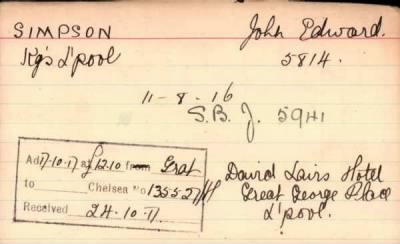 SIMPSON John Edward.
Kg's L'pool 5814.
11-8.16
S.B. J. 5941
Ad 17-10.17 a £12.10 from Grat
to Chelsea No 13552717
Received 24.10.17
David Lairs Hotel
Great George Place
L'pool.